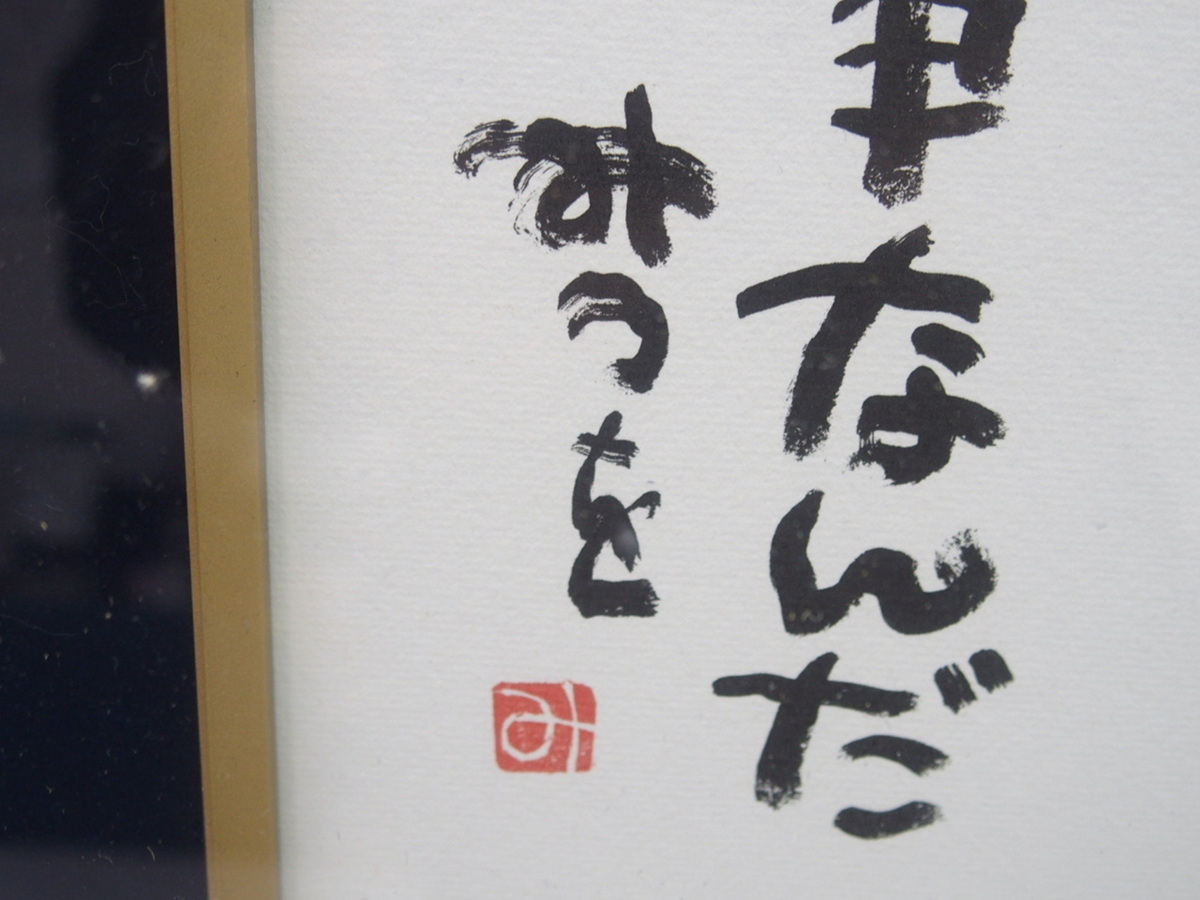 事なんだ
みつを
み